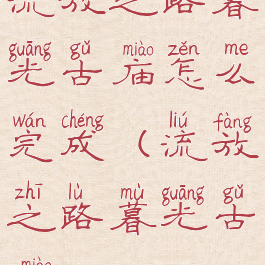 流放之路暮
guāng gǔ miào zěn me
光古庙怎么
wán chéng liú fàng
完成（流放
zhī lù mù guāng gǔ
之路暮光古
miào